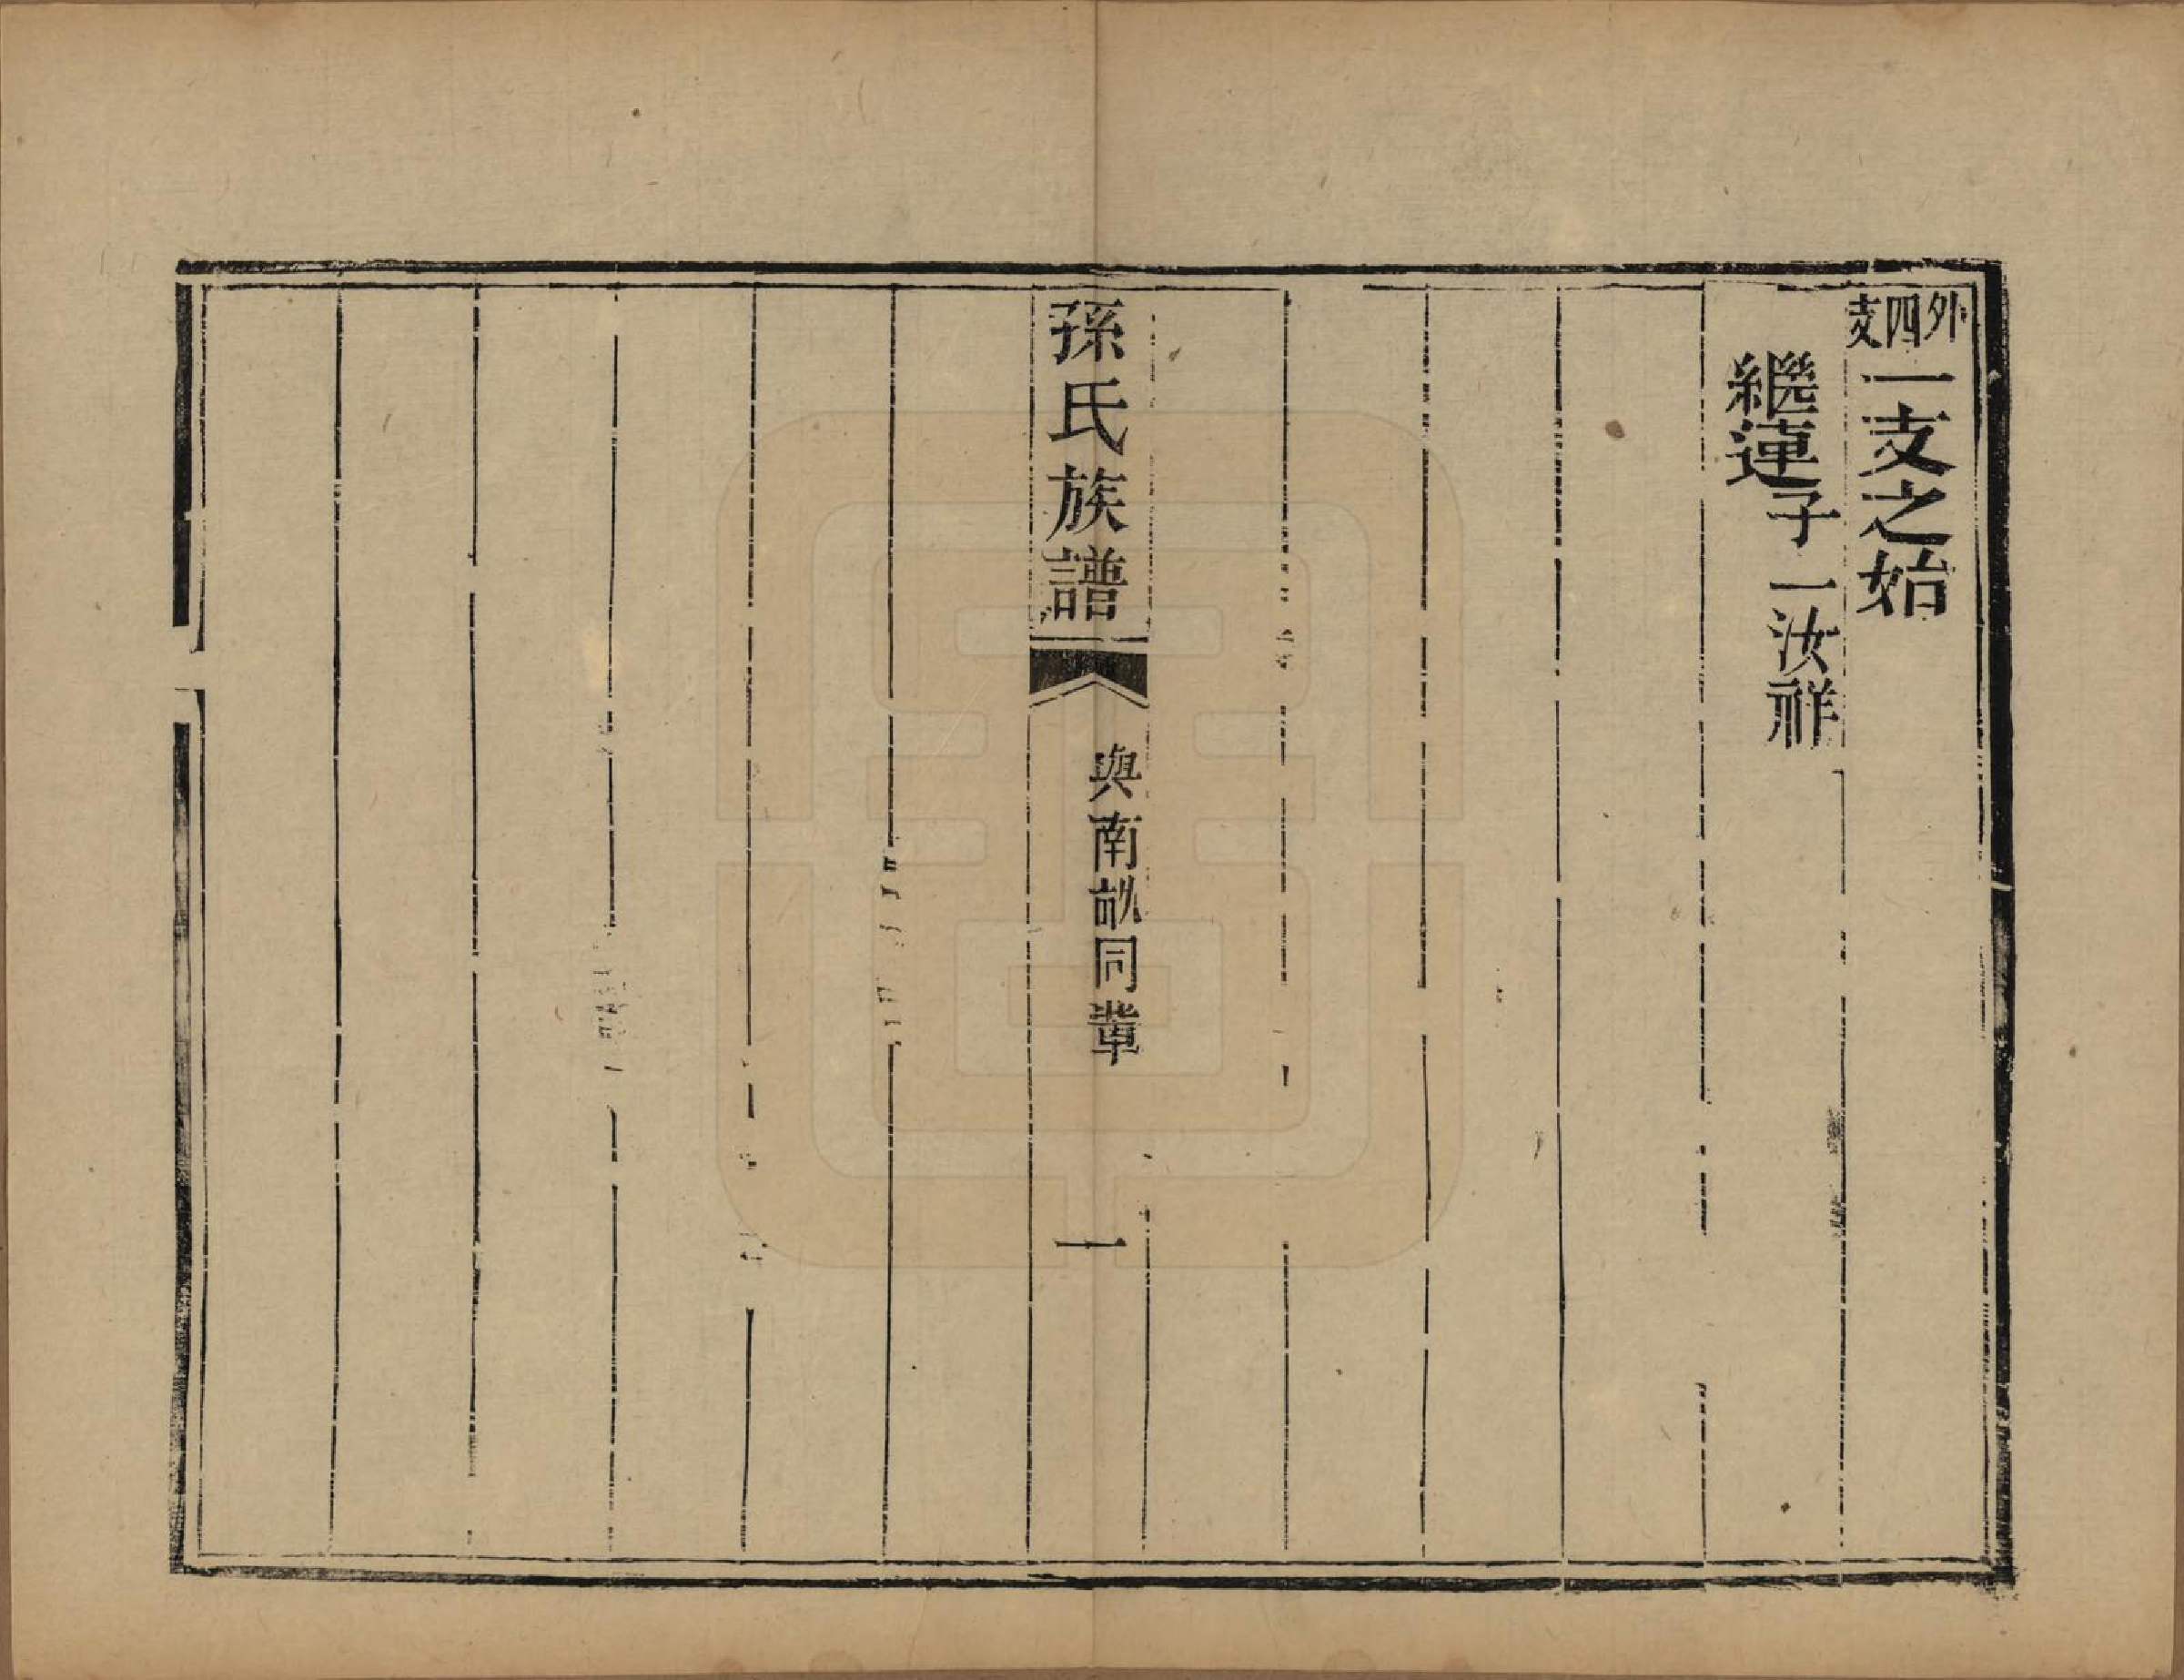 外四支
一支之始
繼運子一汝祥
孫氏族譜
與南訧同輩
一